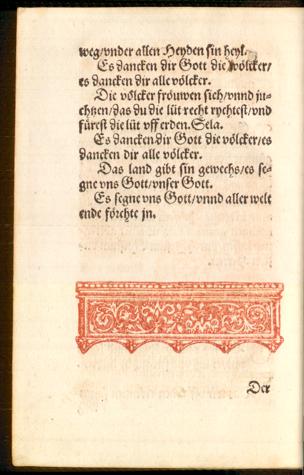 weg/vnder allen Heyden sin heyl.
Es dancken dir Gott die völcker/
es dancken dir alle völcker.
Die völcker fröuwen sich/vnnd ju-
chtzen/das du die lüt recht rychtest/vnd
fürest die lüt vff erden. Sela.
Es dancken dir Gott die völcker/es
dancken dir alle völcker.
Das land gibt sin gewechs/es se-
gne vns Gott/vnser Gott.
Es segne vns Gott/vnnd aller welt
ende förchte jn.
Der